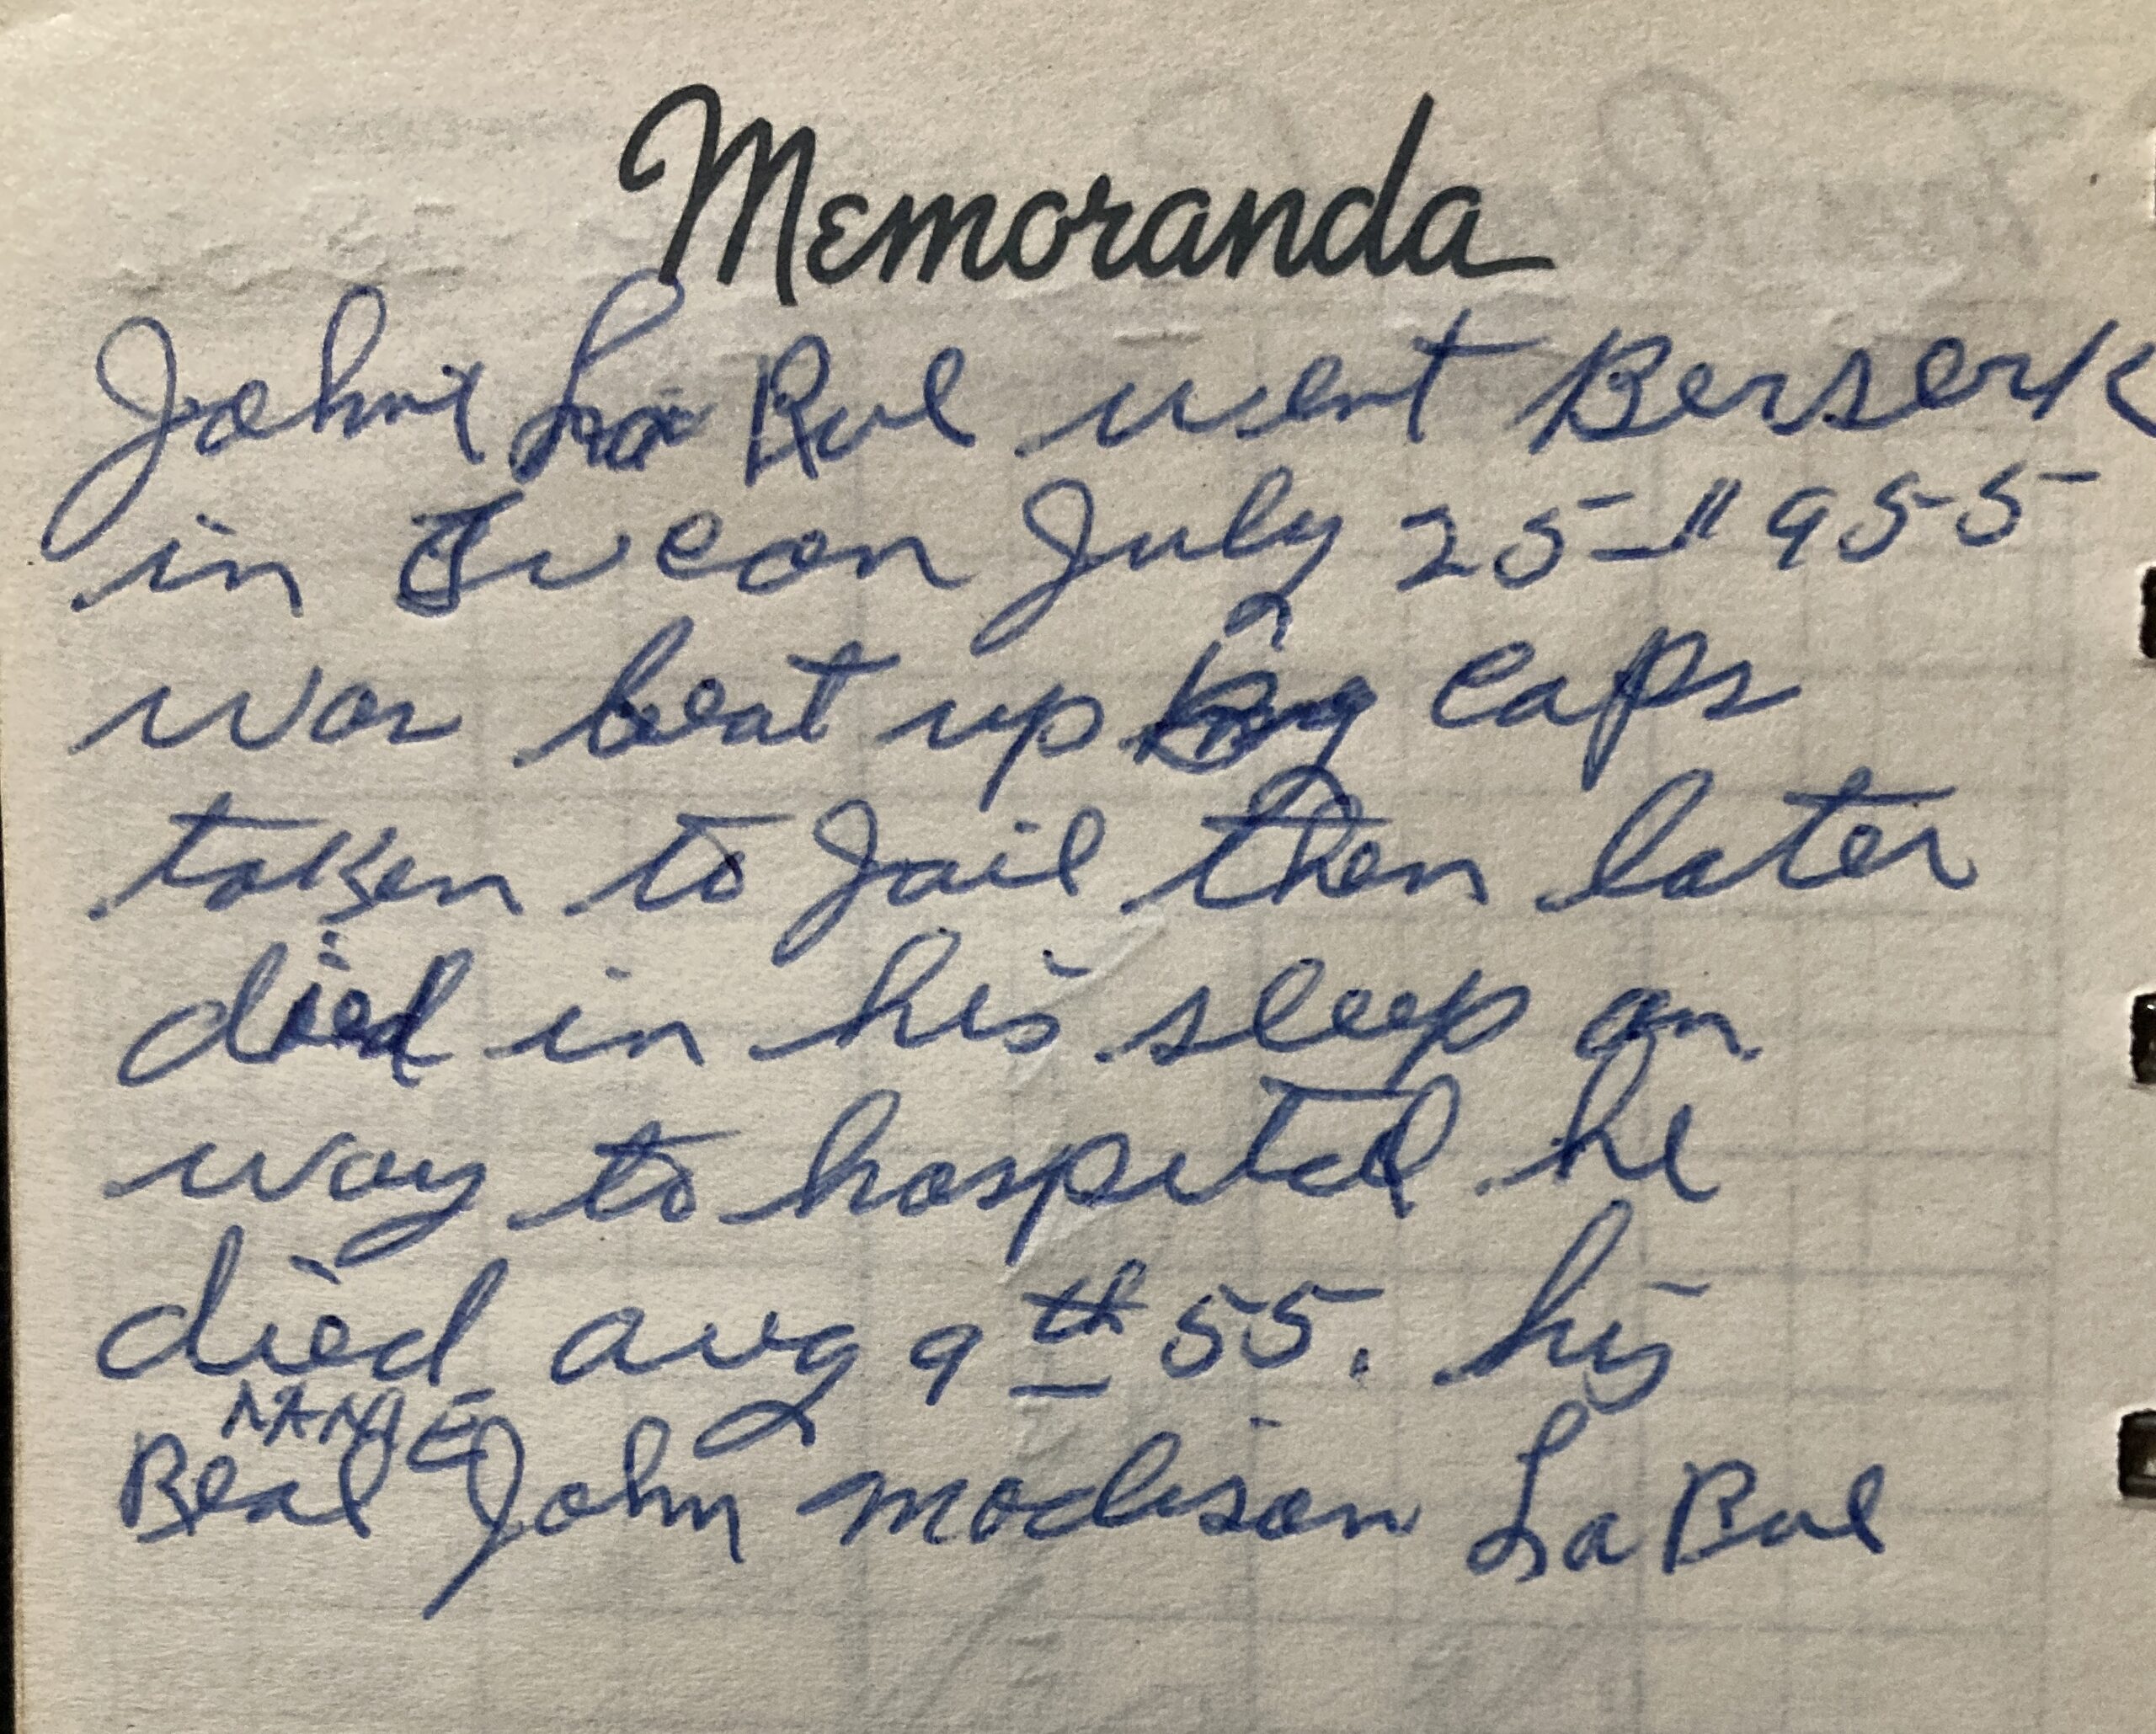 Memoranda
John La Rue went Berserk
in Tucson July 25 - 1955
was beat up by cops
taken to Jail then later
died in his sleep on
way to hospital he
died Aug 9th 55. his
NAME
Real John Madison La Rue